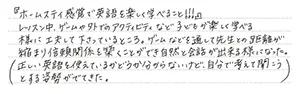 『ホームステイ感覚で英語を楽しく学べること!!!』
レッスン中、ゲームや外でのアクティビティなど子どもが楽しく学べる
様に工夫して下さっているところ。ゲームなどを通して先生との距離が
縮まり信頼関係を築くことができ自然と会話が出来る様になった。
(正しい英語を使えているかどうか分からないけど、自分で考えて闘こう
とする姿勢ができてきた。)